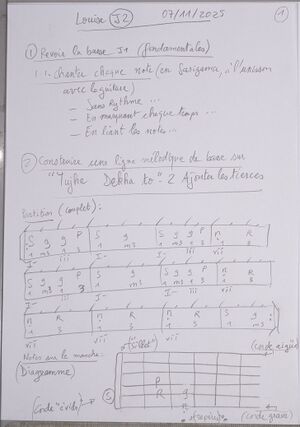 Louise J2 07/11/2025 1
1 Revoir la base J1 (fondamentales)
1. chanter chaque note (en Sarigama, à l'unisson
avec la guitare)
- Sans Rythme ...
- En marquant chaque temps ...
- En liant les notes...
2 Construire une ligne mélodique de base sur
"Tujhe Dekha to" - 2 Ajouter les tierces
Partition (complet):
S g g P S g S g g P n R
1 m3 m3 1 1 m3 1 m3 1 3 1 3
I- iii I- I- iii vii
S g g P S g S g g P
1 m3 1 3 1 m3 1 m3 1 3
I- iii I- I- iii
n R n R n R S g
1 3 1 3 1 3 1 m3
vii vii vii I-
Notes sur le manche:
(Diagramme)
"Sillet"
(corde aigüe)
P
R g
n
S
(corde grave)